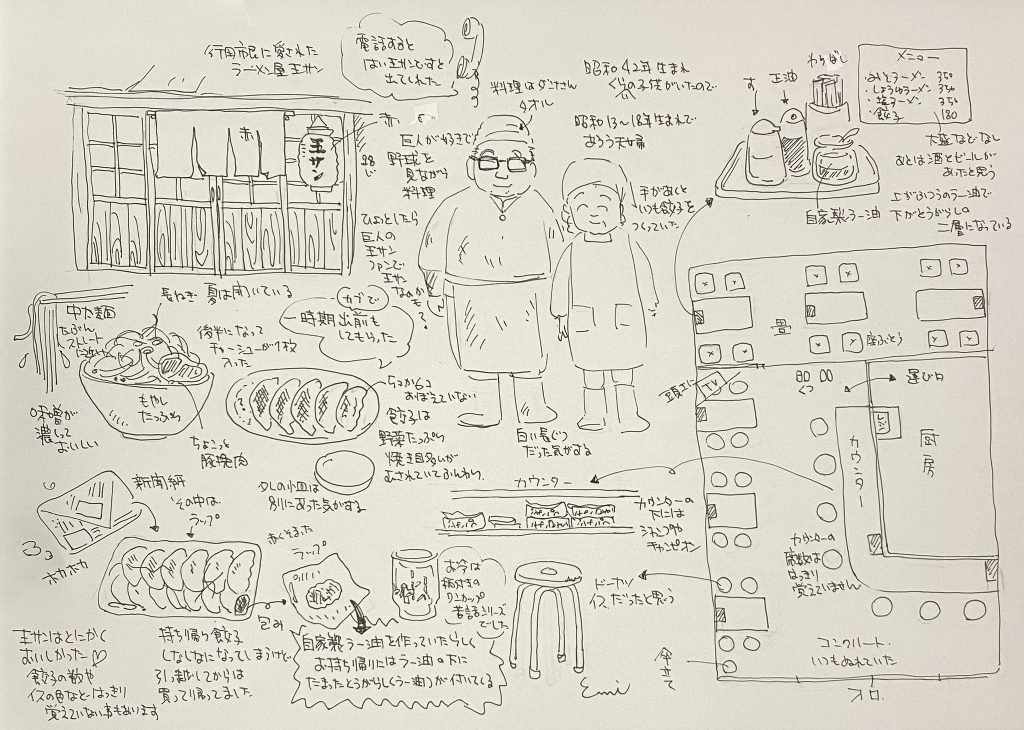 行田市民に愛された
ラーメン屋王サン
電話すると
はい王サンですと
出てくれた
赤い
王サン
赤
料理はダンナさん
タオル
巨人が好きで
野球を
見ながら
料理
ひょっとしたら
巨人の
王サン
ファンで
王サン
なのかも?
昭和42年生まれ
ぐらいの子供がいたので
昭和13〜18年生まれで
あろう夫婦
手があくと
いつも餃子を
つくっていた
白い長ぐつ
だった気がする
す
正油
わりばし
メニュー
・みそラーメン 350
・しょうゆラーメン 350
・塩ラーメン 350
・餃子 180
大盛などなし
あとは酒とビールが
あったと思う
自家製ラー油
上がふつうのラー油で
下がとうがらしの
二層になっている
長ねぎ
夏は開いている
中太麺
たぶん
ストレート
もやし
たっぷり
味噌が
濃くて
おいしい
ちょこっと
豚挽肉
後半になって
チャーシューが1枚
入った
カブで
一時期出前も
してもらった
5コか6コ
おぼえていない
餃子は
野菜たっぷり
焼き目多いが
むされていてふんわり
タレの小皿は
別にあった気がする
新聞紙
その中は
ラップ
ホカホカ
赤くそまった
ラップ
包み
お冷は
柄付きの
ワンカップ
昔話シリーズ
でした
自家製ラー油を作っていたらしく
お持ち帰りにはラー油の下に
たまったとうがらし(ラー油)が付いてくる
王サンはとにかく
おいしかった♡
餃子の数や
イスの色などはっきり
覚えていない事もあります
持ち帰り餃子
しなしなになってしまうけど
引っ越してからは
買って帰ってました
カウンター
カウンターの
下には
ジャンプや
チャンピオン
ドーナツ
イスだったと思う
Emi
畳
座ぶとう
くつ
運び口
TV
レジ
厨房
カウンター
カウンターの
席数は
はっきり
覚えていません
コンクリート
いつもぬれていた
傘立て